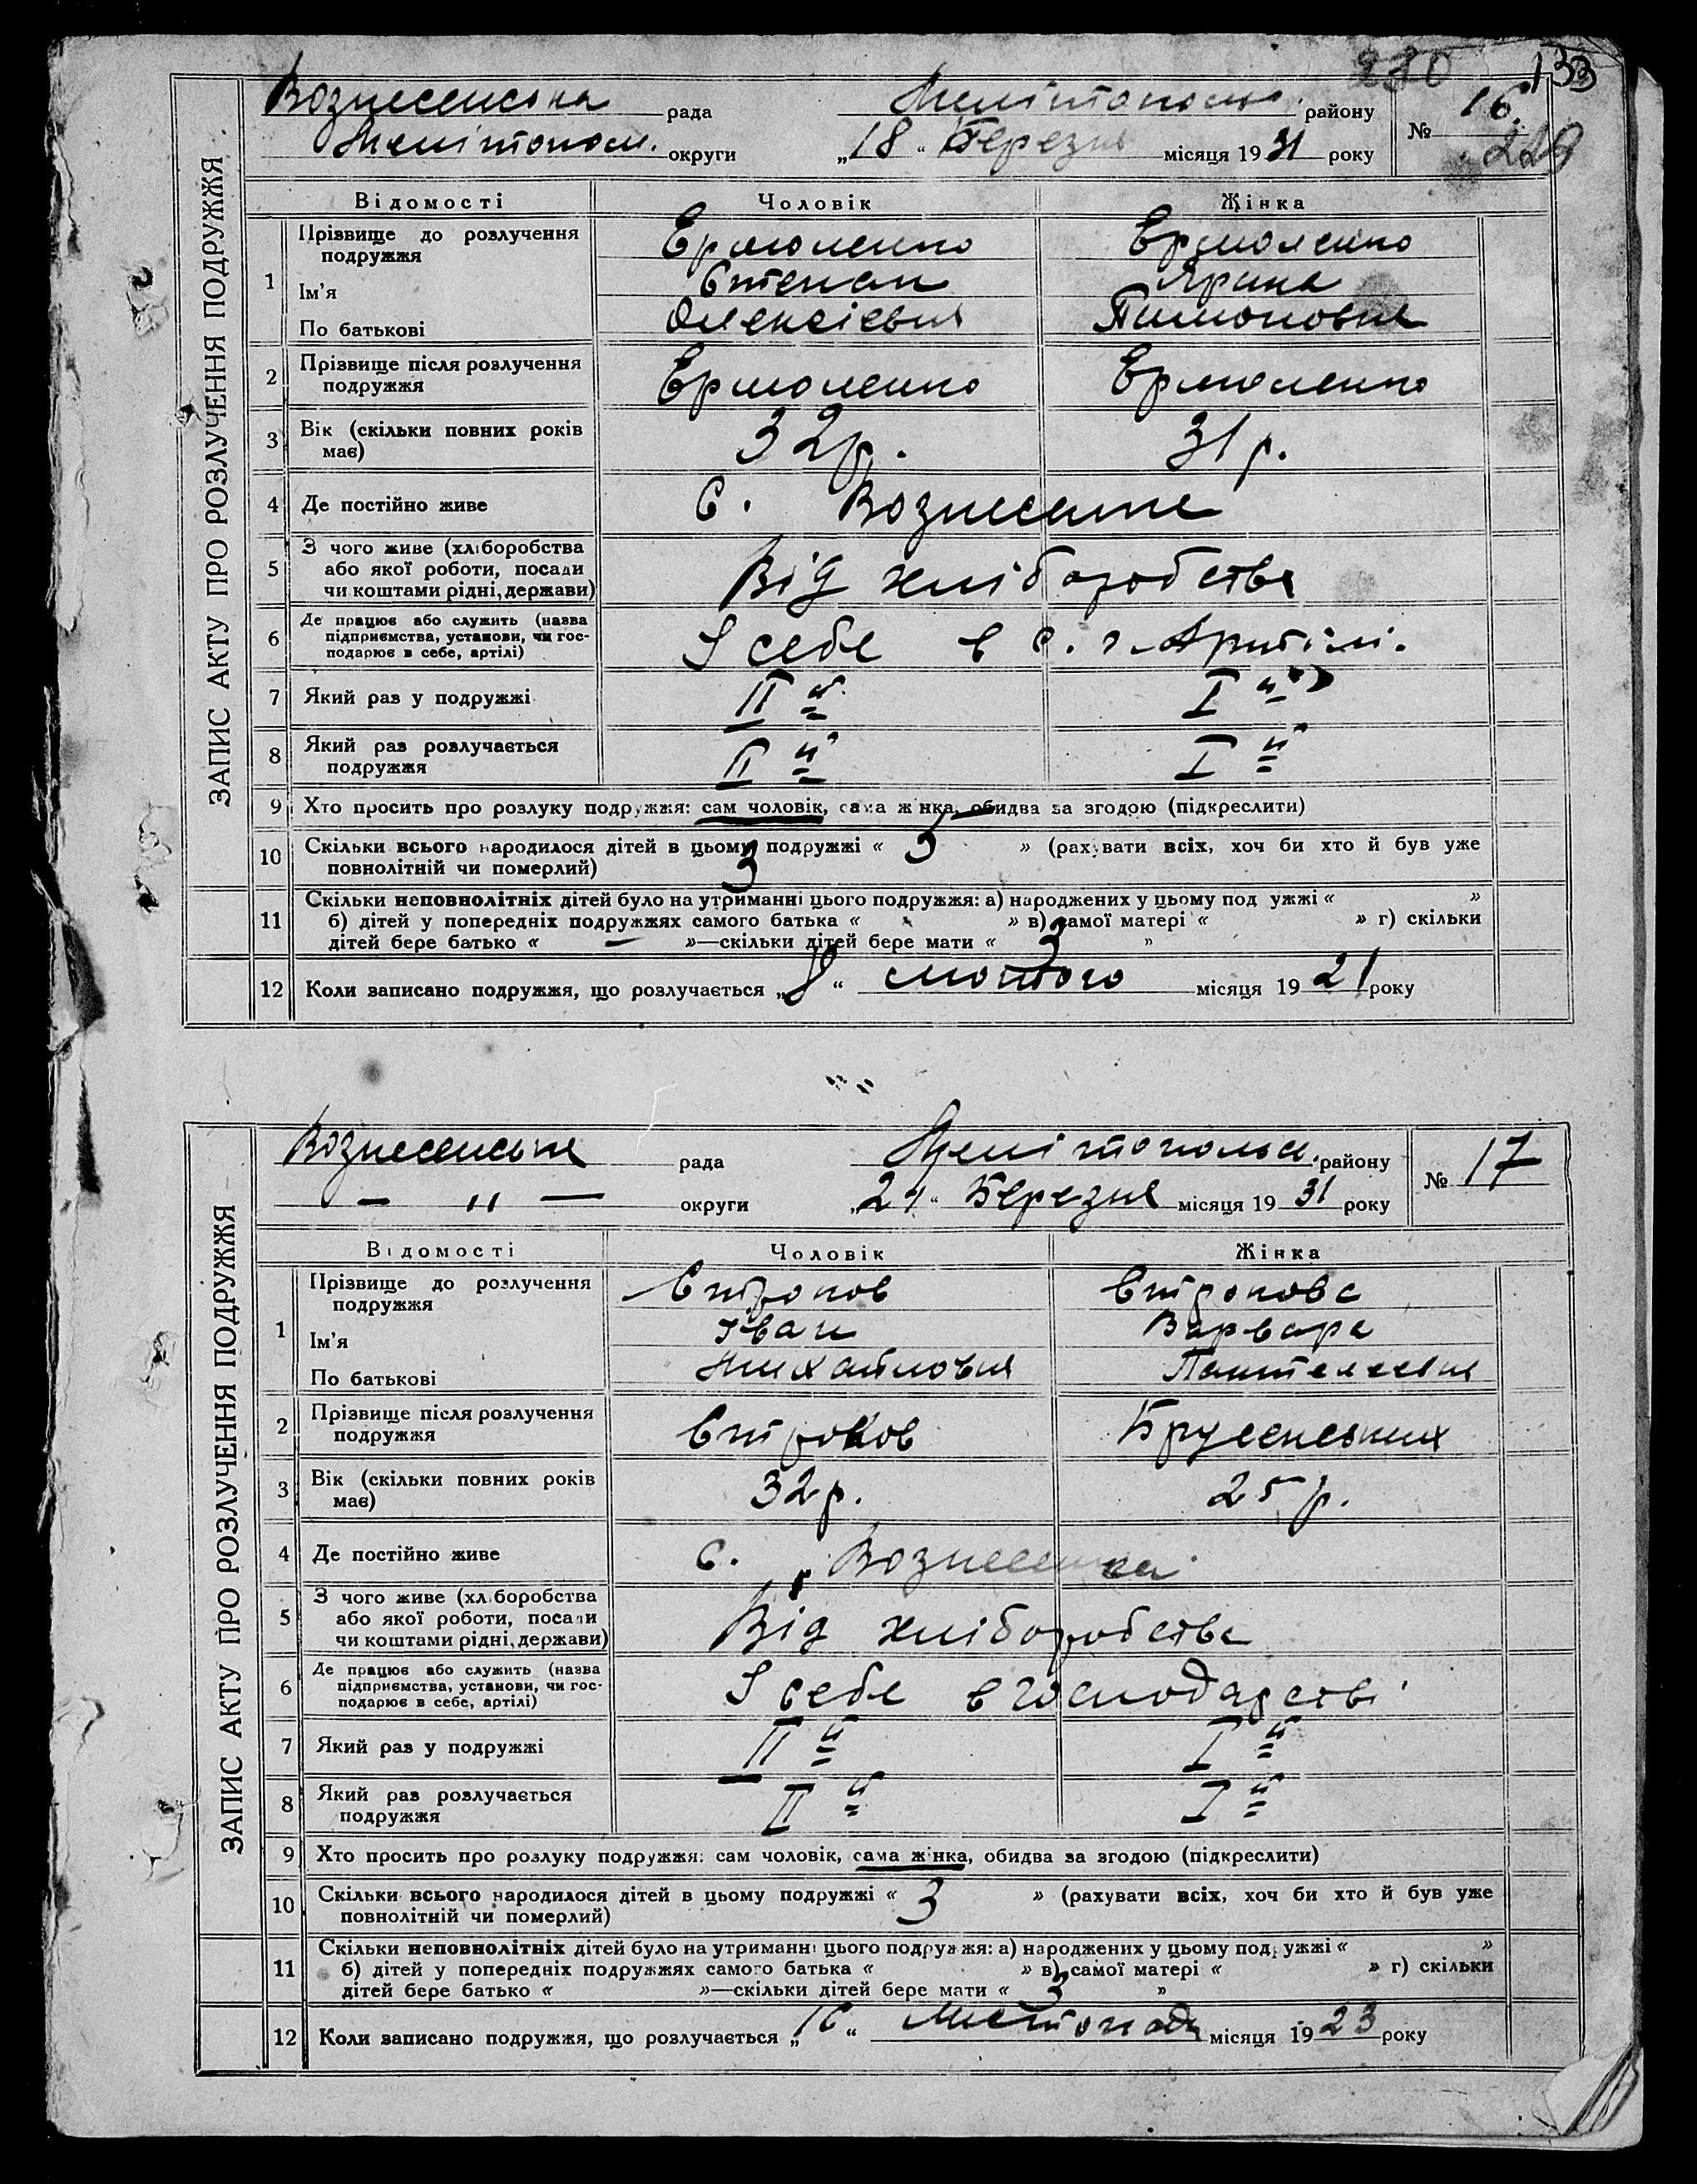 230 133
ЗАПИС АКТУ ПРО РОЗЛУЧЕННЯ ПОДРУЖЖЯ
Вознесенська рада Мелітопольс. району № 16
Мелітопол. округи „18“ Березня місяця 1931 року 229
Відомості Чоловік Жінка
1 Прізвище до розлучення подружжя Ермоленко Ермоленко
Ім'я Степан Ярина
По батькові Олексієвич Тимоновна
2 Прізвище після розлучення подружжя Ермоленко Ермоленко
3 Вік (скільки повних років має) 32 р. 31 р.
4 Де постійно живе С. Вознесенка
5 З чого живе (хліборобства або якої роботи, посади чи коштами рідні, держави) Від хліборобства
6 Де працює або служить (назва підприємства, установи, чи господарює в себе, артілі) У себе в с. г. Артілі.
7 Який раз у подружжі II й I й
8 Який раз розлучається подружжя II й I й
9 Хто просить про розлуку подружжя: сам чоловік, сама жінка, обидва за згодою (підкреслити)
10 Скільки всього народилося дітей в цьому подружжі « 3 » (рахувати всіх, хоч би хто й був уже
повнолітній чи померлий) 3
11 Скільки неповнолітніх дітей було на утриманні цього подружжя: а) народжених у цьому подружжі « »
б) дітей у попередніх подружжях самого батька « » в) самої матері « » г) скільки
дітей бере батько « — »—скільки дітей бере мати « 3 »
12 Коли записано подружжя, що розлучається „8“ лютого місяця 1921 року
ЗАПИС АКТУ ПРО РОЗЛУЧЕННЯ ПОДРУЖЖЯ
Вознесенська рада Мелітопольс. району № 17
— " — округи „21“ Березня місяця 1931 року
Відомості Чоловік Жінка
1 Прізвище до розлучення подружжя Строков Строкова
Ім'я Іван Варвара
По батькові Михайлович Пантелеевна
2 Прізвище після розлучення подружжя Строков
3 Вік (скільки повних років має) 32 р. 25 р.
4 Де постійно живе с. Вознесенка
5 З чого живе (хліборобства або якої роботи, посади чи коштами рідні, держави) Від хліборобства
6 Де працює або служить (назва підприємства, установи, чи господарює в себе, артілі) У себе в господарстві
7 Який раз у подружжі II й I й
8 Який раз розлучається подружжя II й I й
9 Хто просить про розлуку подружжя: сам чоловік, сама жінка, обидва за згодою (підкреслити)
10 Скільки всього народилося дітей в цьому подружжі « 3 » (рахувати всіх, хоч би хто й був уже
повнолітній чи померлий)
11 Скільки неповнолітніх дітей було на утриманні цього подружжя: а) народжених у цьому подружжі « »
б) дітей у попередніх подружжях самого батька « » в) самої матері « » г) скільки
дітей бере батько « »—скільки дітей бере мати « 3 »
12 Коли записано подружжя, що розлучається „16“ Листопада місяця 1923 року